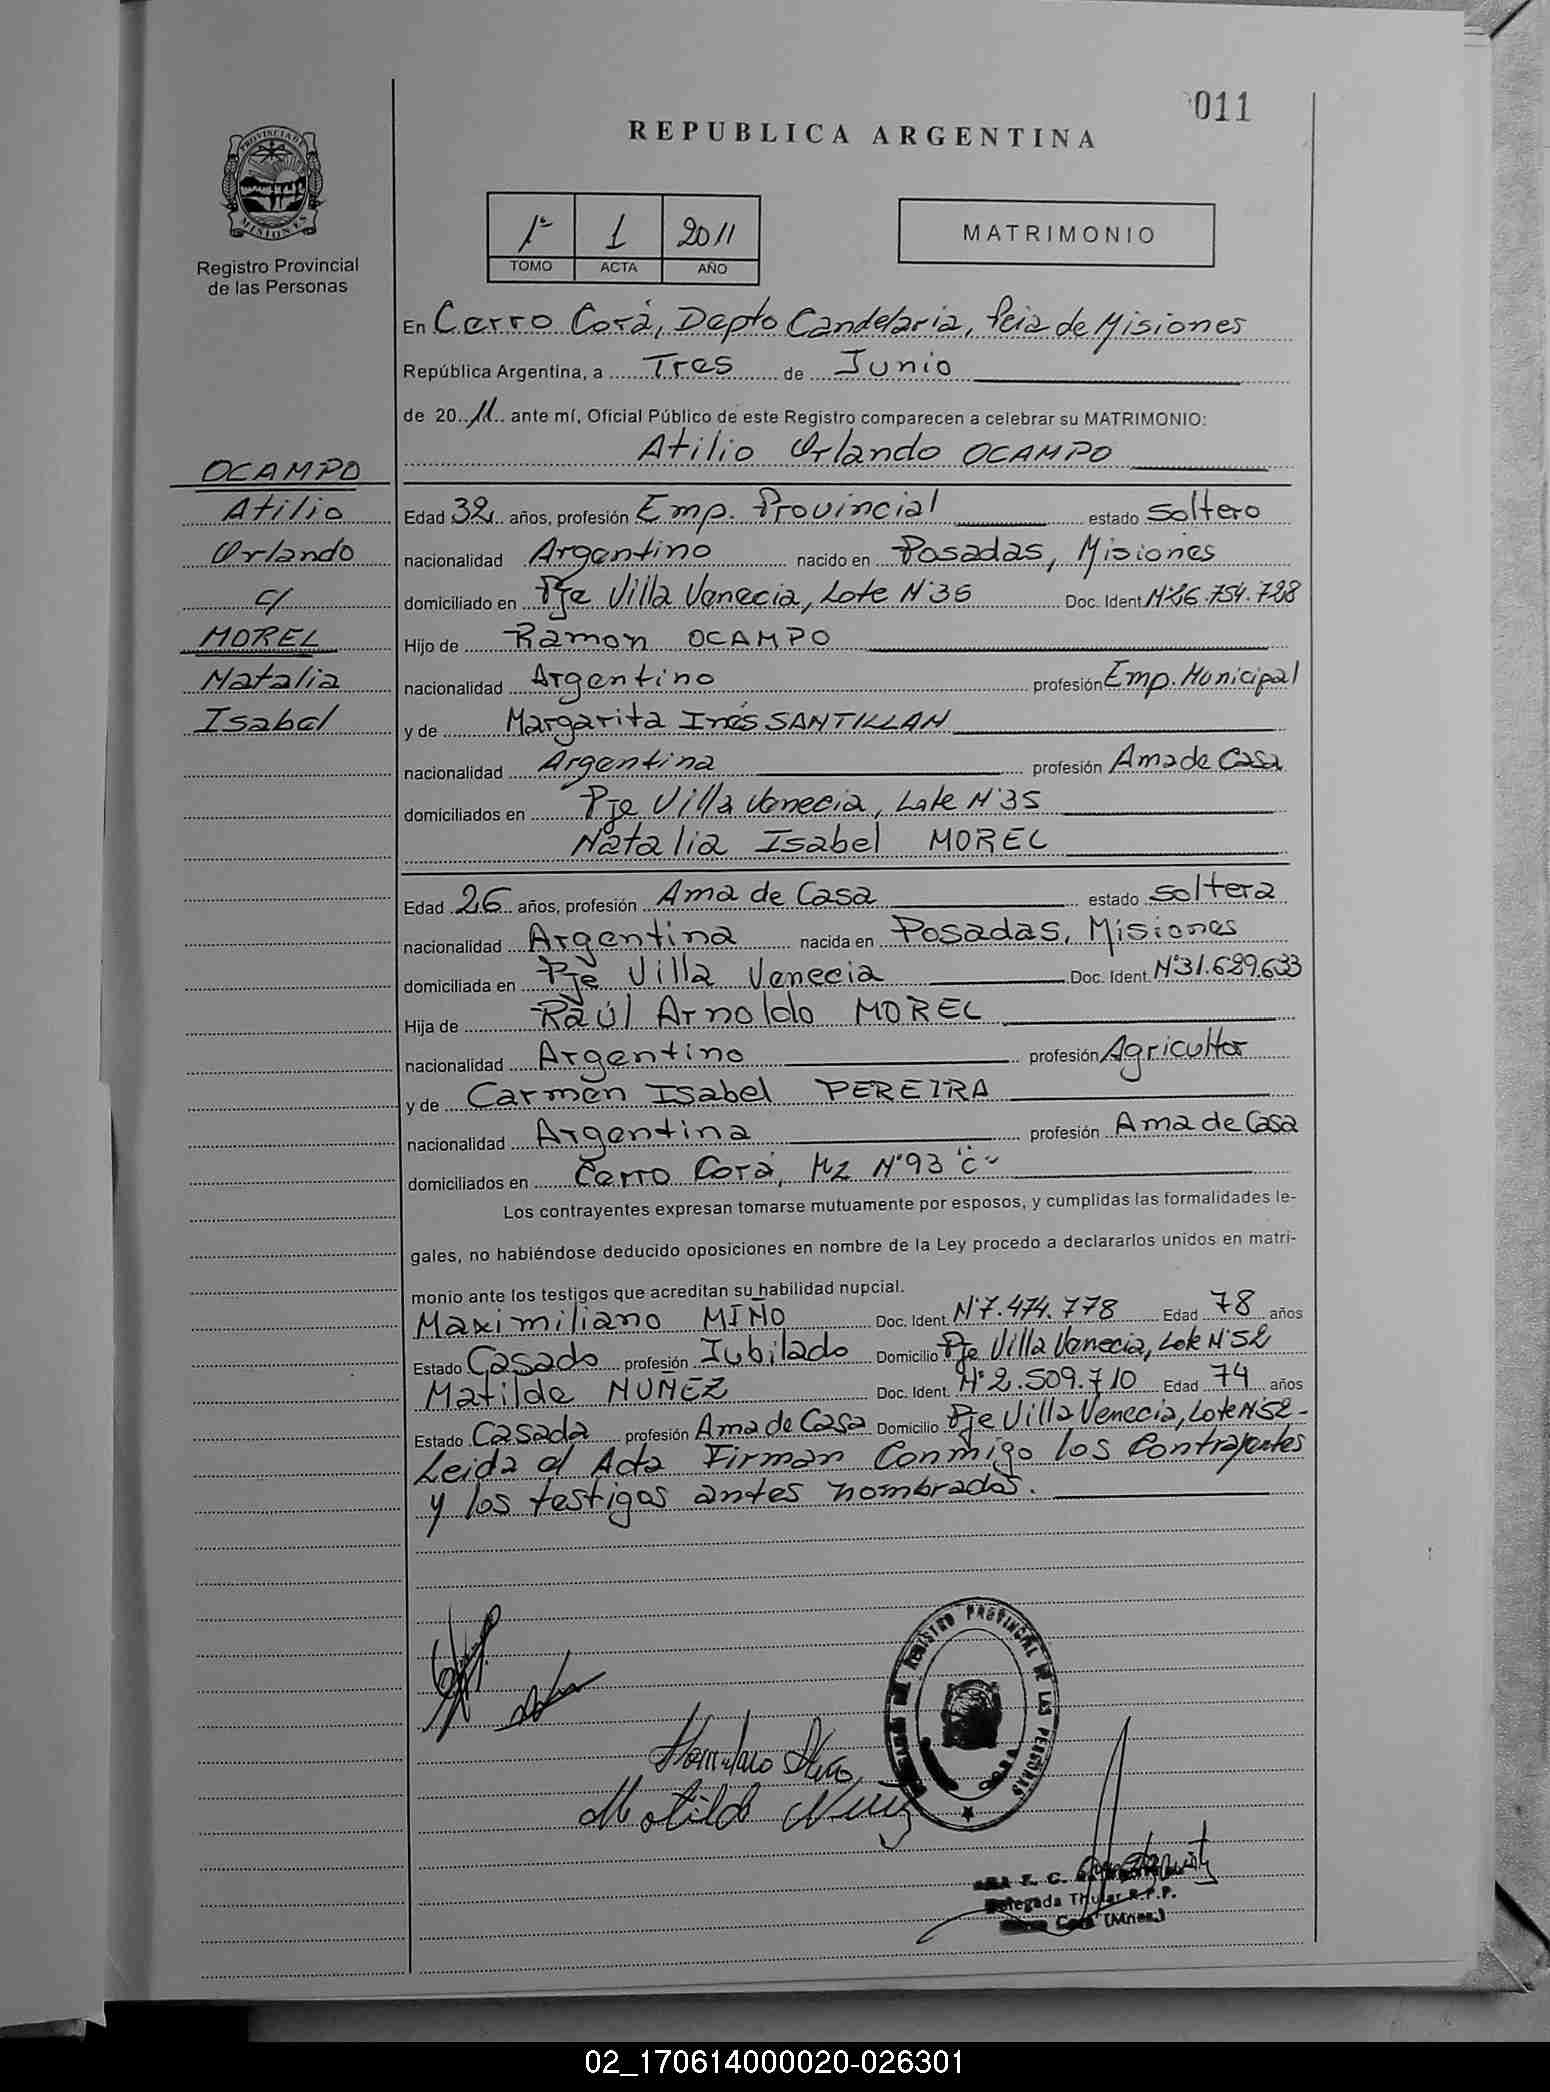 011
REPUBLICA ARGENTINA
PROVINCIA DE
MISIONES
Registro Provincial
de las Personas
1º 1 2011
TOMO ACTA AÑO
MATRIMONIO
En Cerro Corá, Depto Candelaria, Pcia de Misiones
República Argentina, a Tres de Junio
de 2011 ante mí, Oficial Público de este Registro comparecen a celebrar su MATRIMONIO:
Atilio Orlando OCAMPO
OCAMPO
Atilio
Orlando
c/
MOREL
Natalia
Isabel
Edad 32 años, profesión Emp. Provincial estado Soltero
nacionalidad Argentino nacido en Posadas, Misiones
domiciliado en Pje Villa Venecia, Lote Nº35 Doc. Ident. Nº26.754.728
Hijo de Ramon OCAMPO
nacionalidad Argentino profesión Emp. Municipal
y de Margarita Inés SANTILLAN
nacionalidad Argentina profesión Ama de Casa
domiciliados en Pje Villa Venecia, Lote Nº35
Natalia Isabel MOREL
Edad 26 años, profesión Ama de Casa estado Soltera
nacionalidad Argentina nacida en Posadas, Misiones
domiciliada en Pje Villa Venecia Doc. Ident. Nº31.689.633
Hija de Raúl Arnoldo MOREL
nacionalidad Argentino profesión Agricultor
y de Carmen Isabel PEREIRA
nacionalidad Argentina profesión Ama de Casa
domiciliados en Cerro Corá, Mz Nº93 "C"
Los contrayentes expresan tomarse mutuamente por esposos, y cumplidas las formalidades le-
gales, no habiéndose deducido oposiciones en nombre de la Ley procedo a declararlos unidos en matri-
monio ante los testigos que acreditan su habilidad nupcial.
Maximiliano MIÑO Doc. Ident. Nº7.474.778 Edad 78 años
Estado Casado profesión Jubilado Domicilio Pje Villa Venecia, Lote Nº52
Matilde NUÑEZ Doc. Ident. Nº2.509.710 Edad 74 años
Estado Casada profesión Ama de Casa Domicilio Pje Villa Venecia, Lote Nº52-
Leida el Acta Firman Conmigo los Contrayentes
y los testigos antes nombrados.
REGISTRO PROVINCIAL DE LAS PERSONAS
Matilde Nuñez
Delegada Titular R.P.P.
Cerro Corá (Mnes.)
02_170614000020-026301